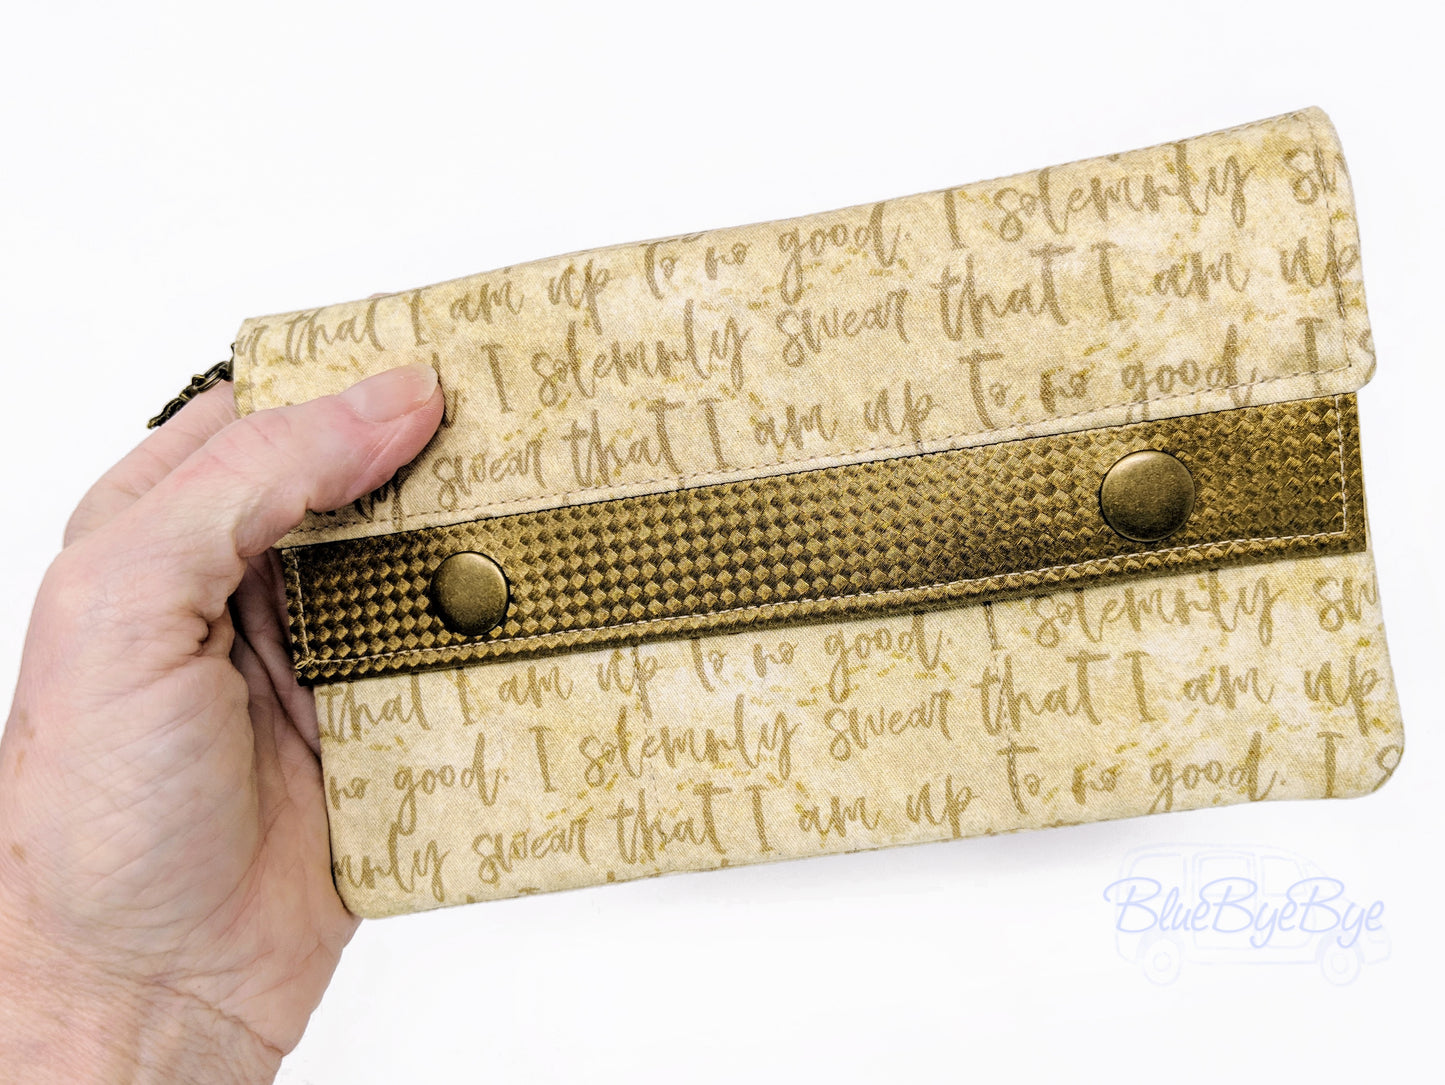 up to no good. I solemnly sw
ar that I am up to no good. I solemnly swear that I am up
d. I solemnly swear that I am up to no good. I s
ly swear that I am up to no good.
up to no good. I solemnly sw
that I am up to no good. I solemnly swear that I am up
no good. I solemnly swear that I am up to no good. I s
mnly swear that I am up to no good. I s
BlueByeBye